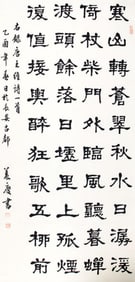 寒山轉蒼翠秋水日潺湲
倚杖柴門外臨風聽暮蟬
渡頭餘落日墟里上孤煙
復值接輿醉狂歌五柳前
右錄唐王維詩一首
乙酉年春日於長安古都
慶書